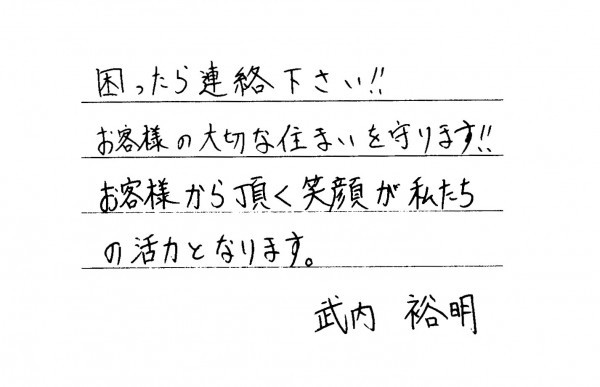 困ったら連絡下さい!!
お客様の大切な住まいを守ります!!
お客様から頂く笑顔が私たち
の活力となります。
武内 裕明